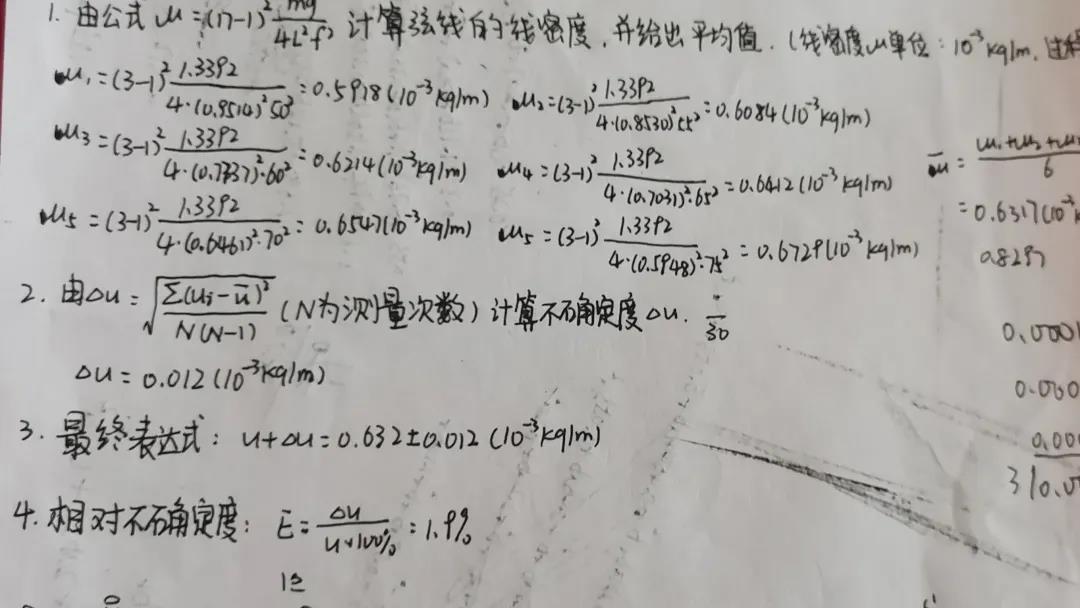 1. 由公式 μ=(n-1)² mg/4L²f² 计算弦线的线密度,并给出平均值.(线密度μ单位:10⁻³kg/m,过程
μ₁=(3-1)² 1.3392/4·(0.9514)²50² =0.5918(10⁻³kg/m) μ₂=(3-1)² 1.3392/4·(0.8530)²55² =0.6084(10⁻³kg/m)
μ₃=(3-1)² 1.3392/4·(0.7737)²·60² =0.6214(10⁻³kg/m) μ₄=(3-1)² 1.3392/4·(0.7031)²·65² =0.6412(10⁻³kg/m)
μ₅=(3-1)² 1.3392/4·(0.6461)²·70² =0.6547(10⁻³kg/m) μ₅=(3-1)² 1.3392/4·(0.5948)²·75² =0.6729(10⁻³kg/m)
μ̄=μ₁+μ₂+μ/6
=0.6317(10⁻³k
0.8297
2. 由Δu=√Σ(ui-ū)²/N(N-1) (N为测量次数)计算不确定度Δu. ÷/30
Δu=0.012(10⁻³kg/m)
0.0001
0.000
0.000
3. 最终表达式:u+Δu=0.632±0.012(10⁻³kg/m)
310.0
4. 相对不确定度:E=Δu/u×100%=1.9%